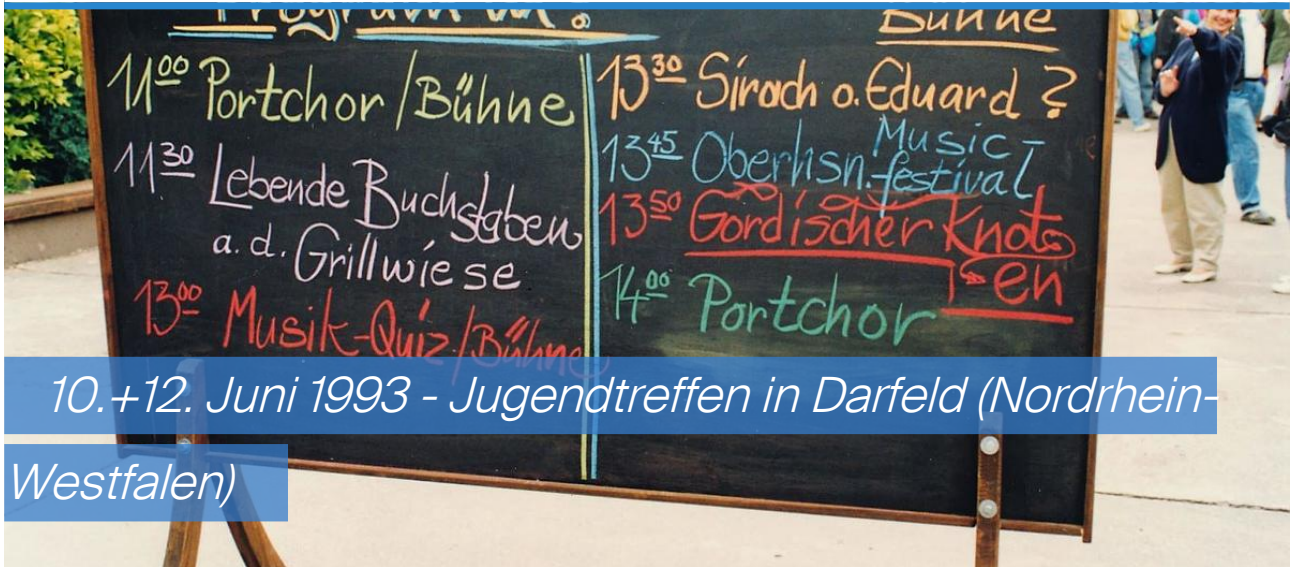 Programm:
Bühne
11 00 Portchor / Bühne
11 30 Lebende Buchstaben
a. d. Grillwiese
13 00 Musik-Quiz / Bühne
13 30 Sirach o. Eduard ?
13 45 Oberhsn. Music-
festival
13 50 Gordischer Knot-
en
14 00 Portchor
10.+12. Juni 1993 - Jugendtreffen in Darfeld (Nordrhein-
Westfalen)